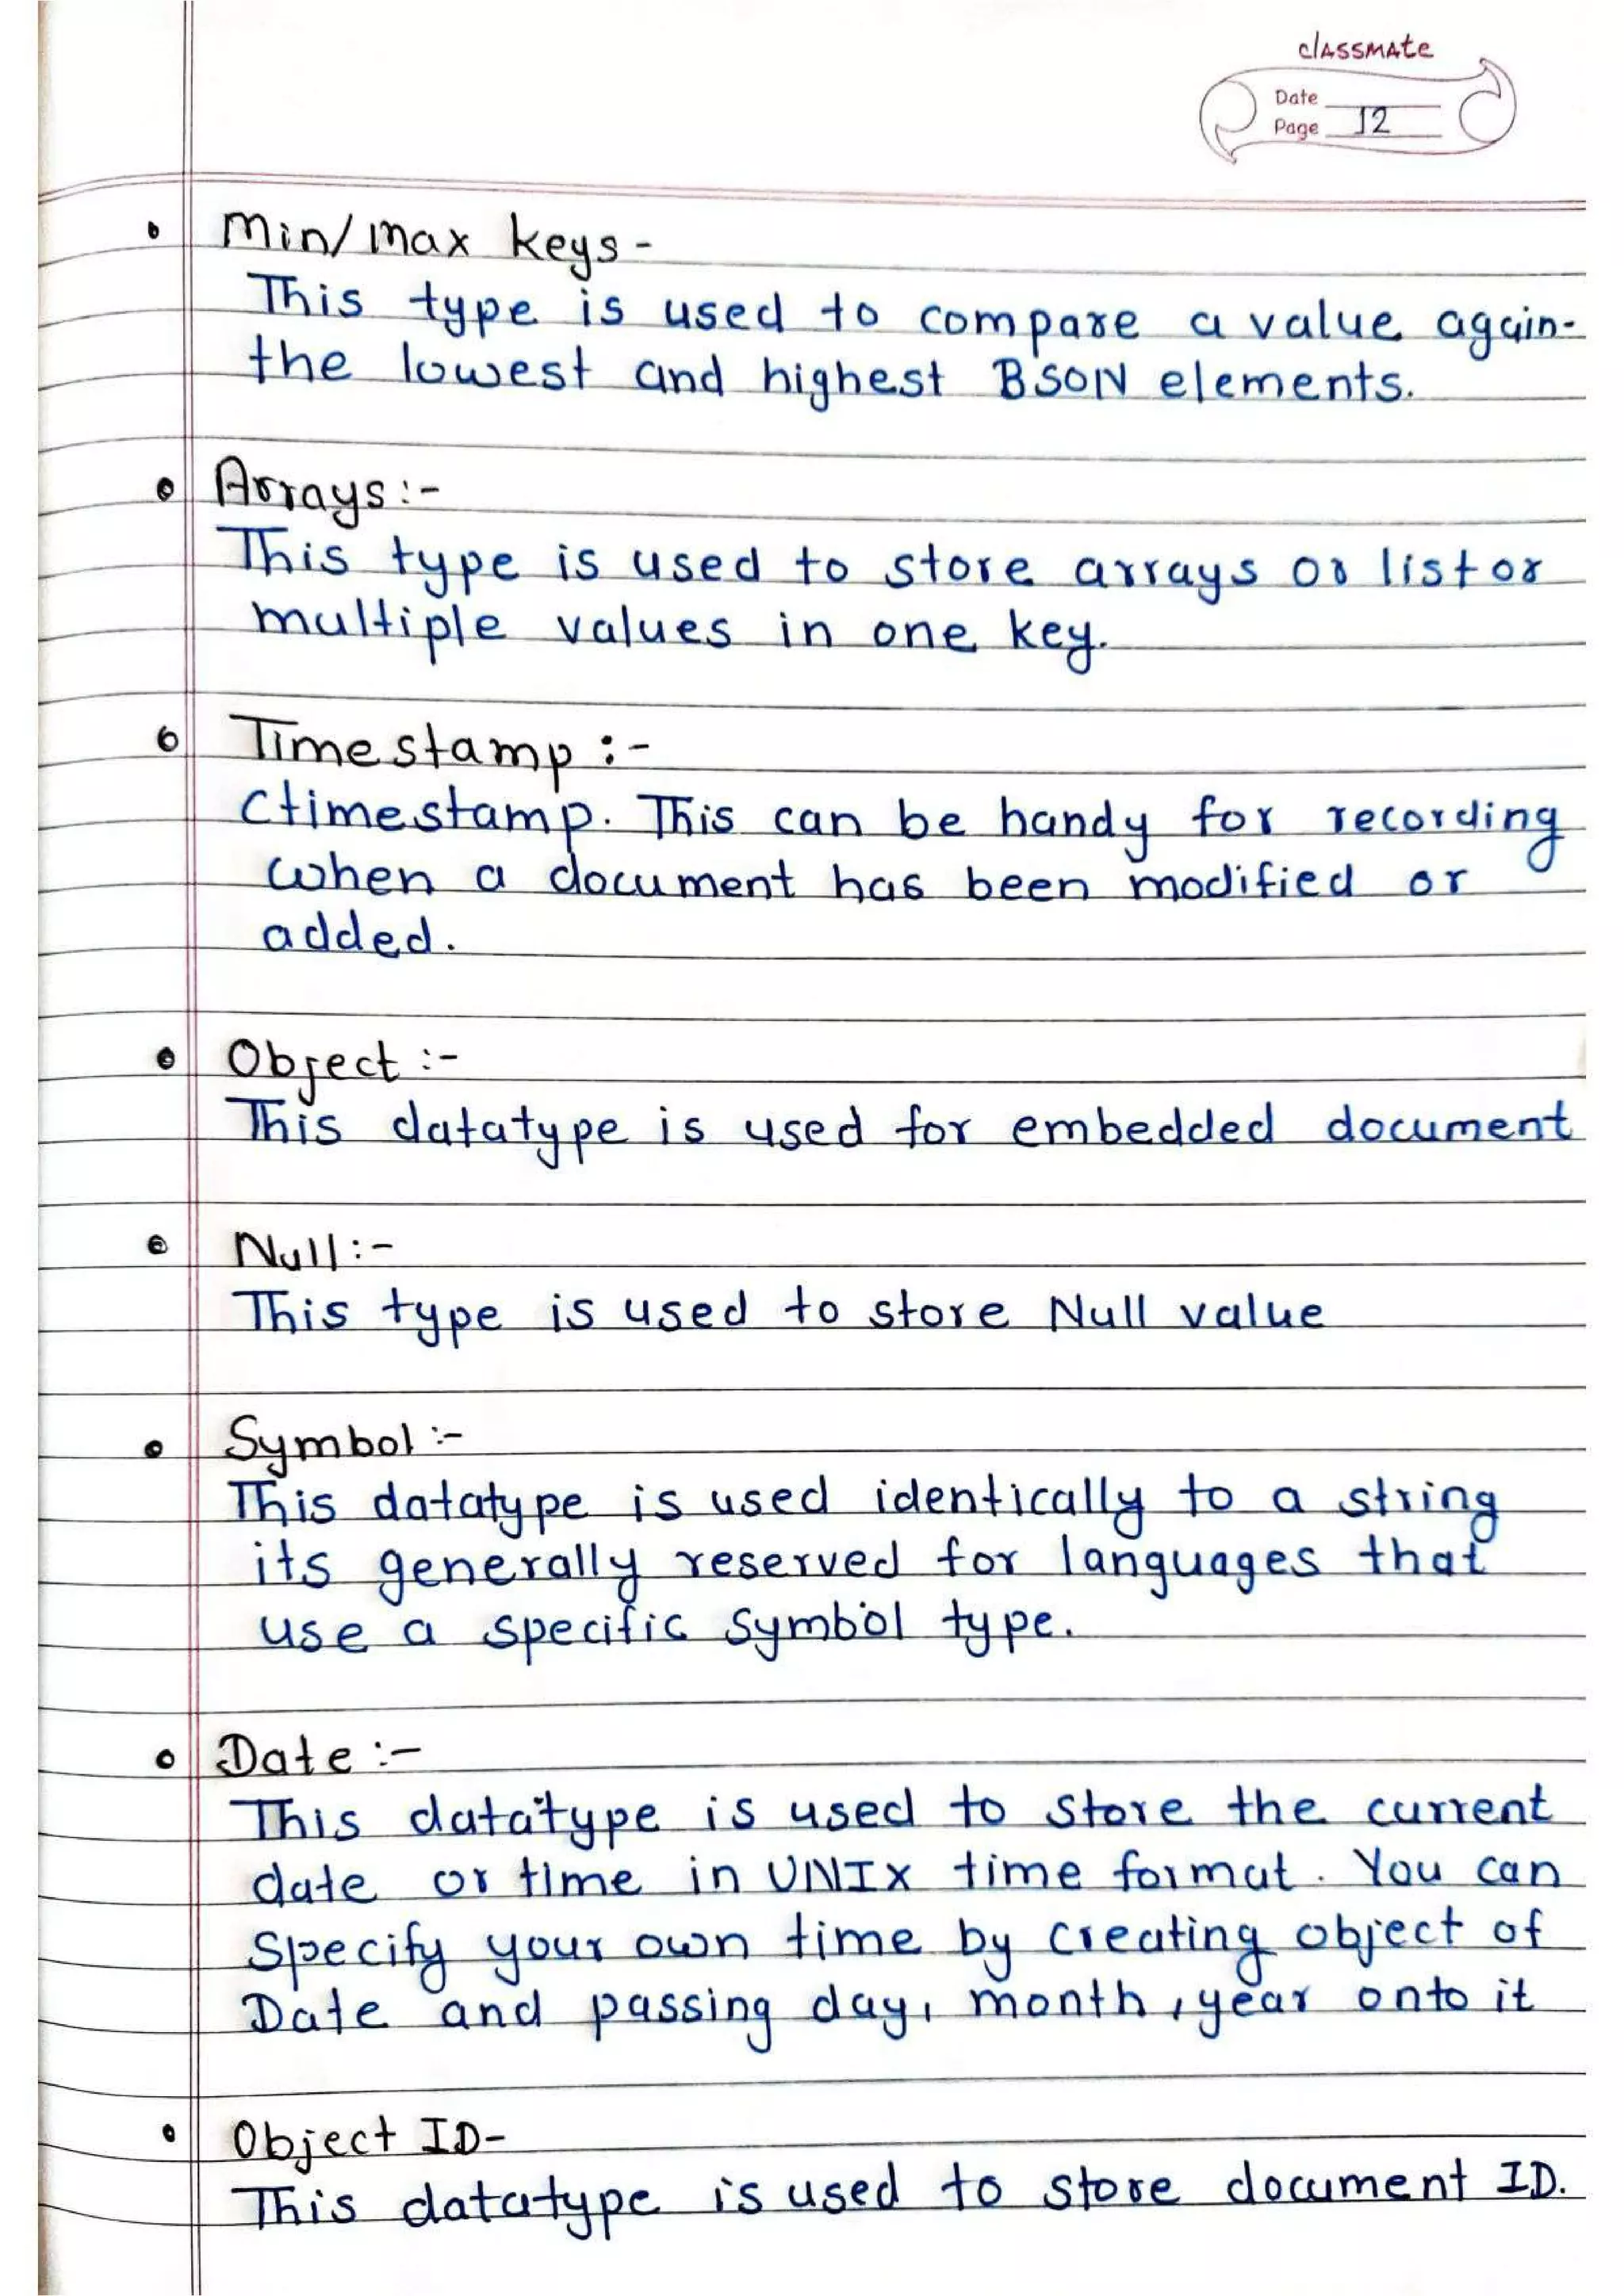 classmate
Date
Page 12
• Min/max keys -
This type is used to compare a value again-
the lowest and highest BSON elements.
• Arrays :-
This type is used to store arrays or list or
multiple values in one key.
• Timestamp :-
Ctimestamp. This can be handy for recording
when a document has been modified or
added.
• Object :-
This datatype is used for embedded document
• Null :-
This type is used to store Null value
• Symbol :-
This datatype is used identically to a string
its generally reserved for languages that
use a specific symbol type.
• Date :-
This datatype is used to store the current
date or time in UNIX time format. You can
specify your own time by creating object of
Date and passing day, month, year onto it
• Object ID-
This datatype is used to store document ID.